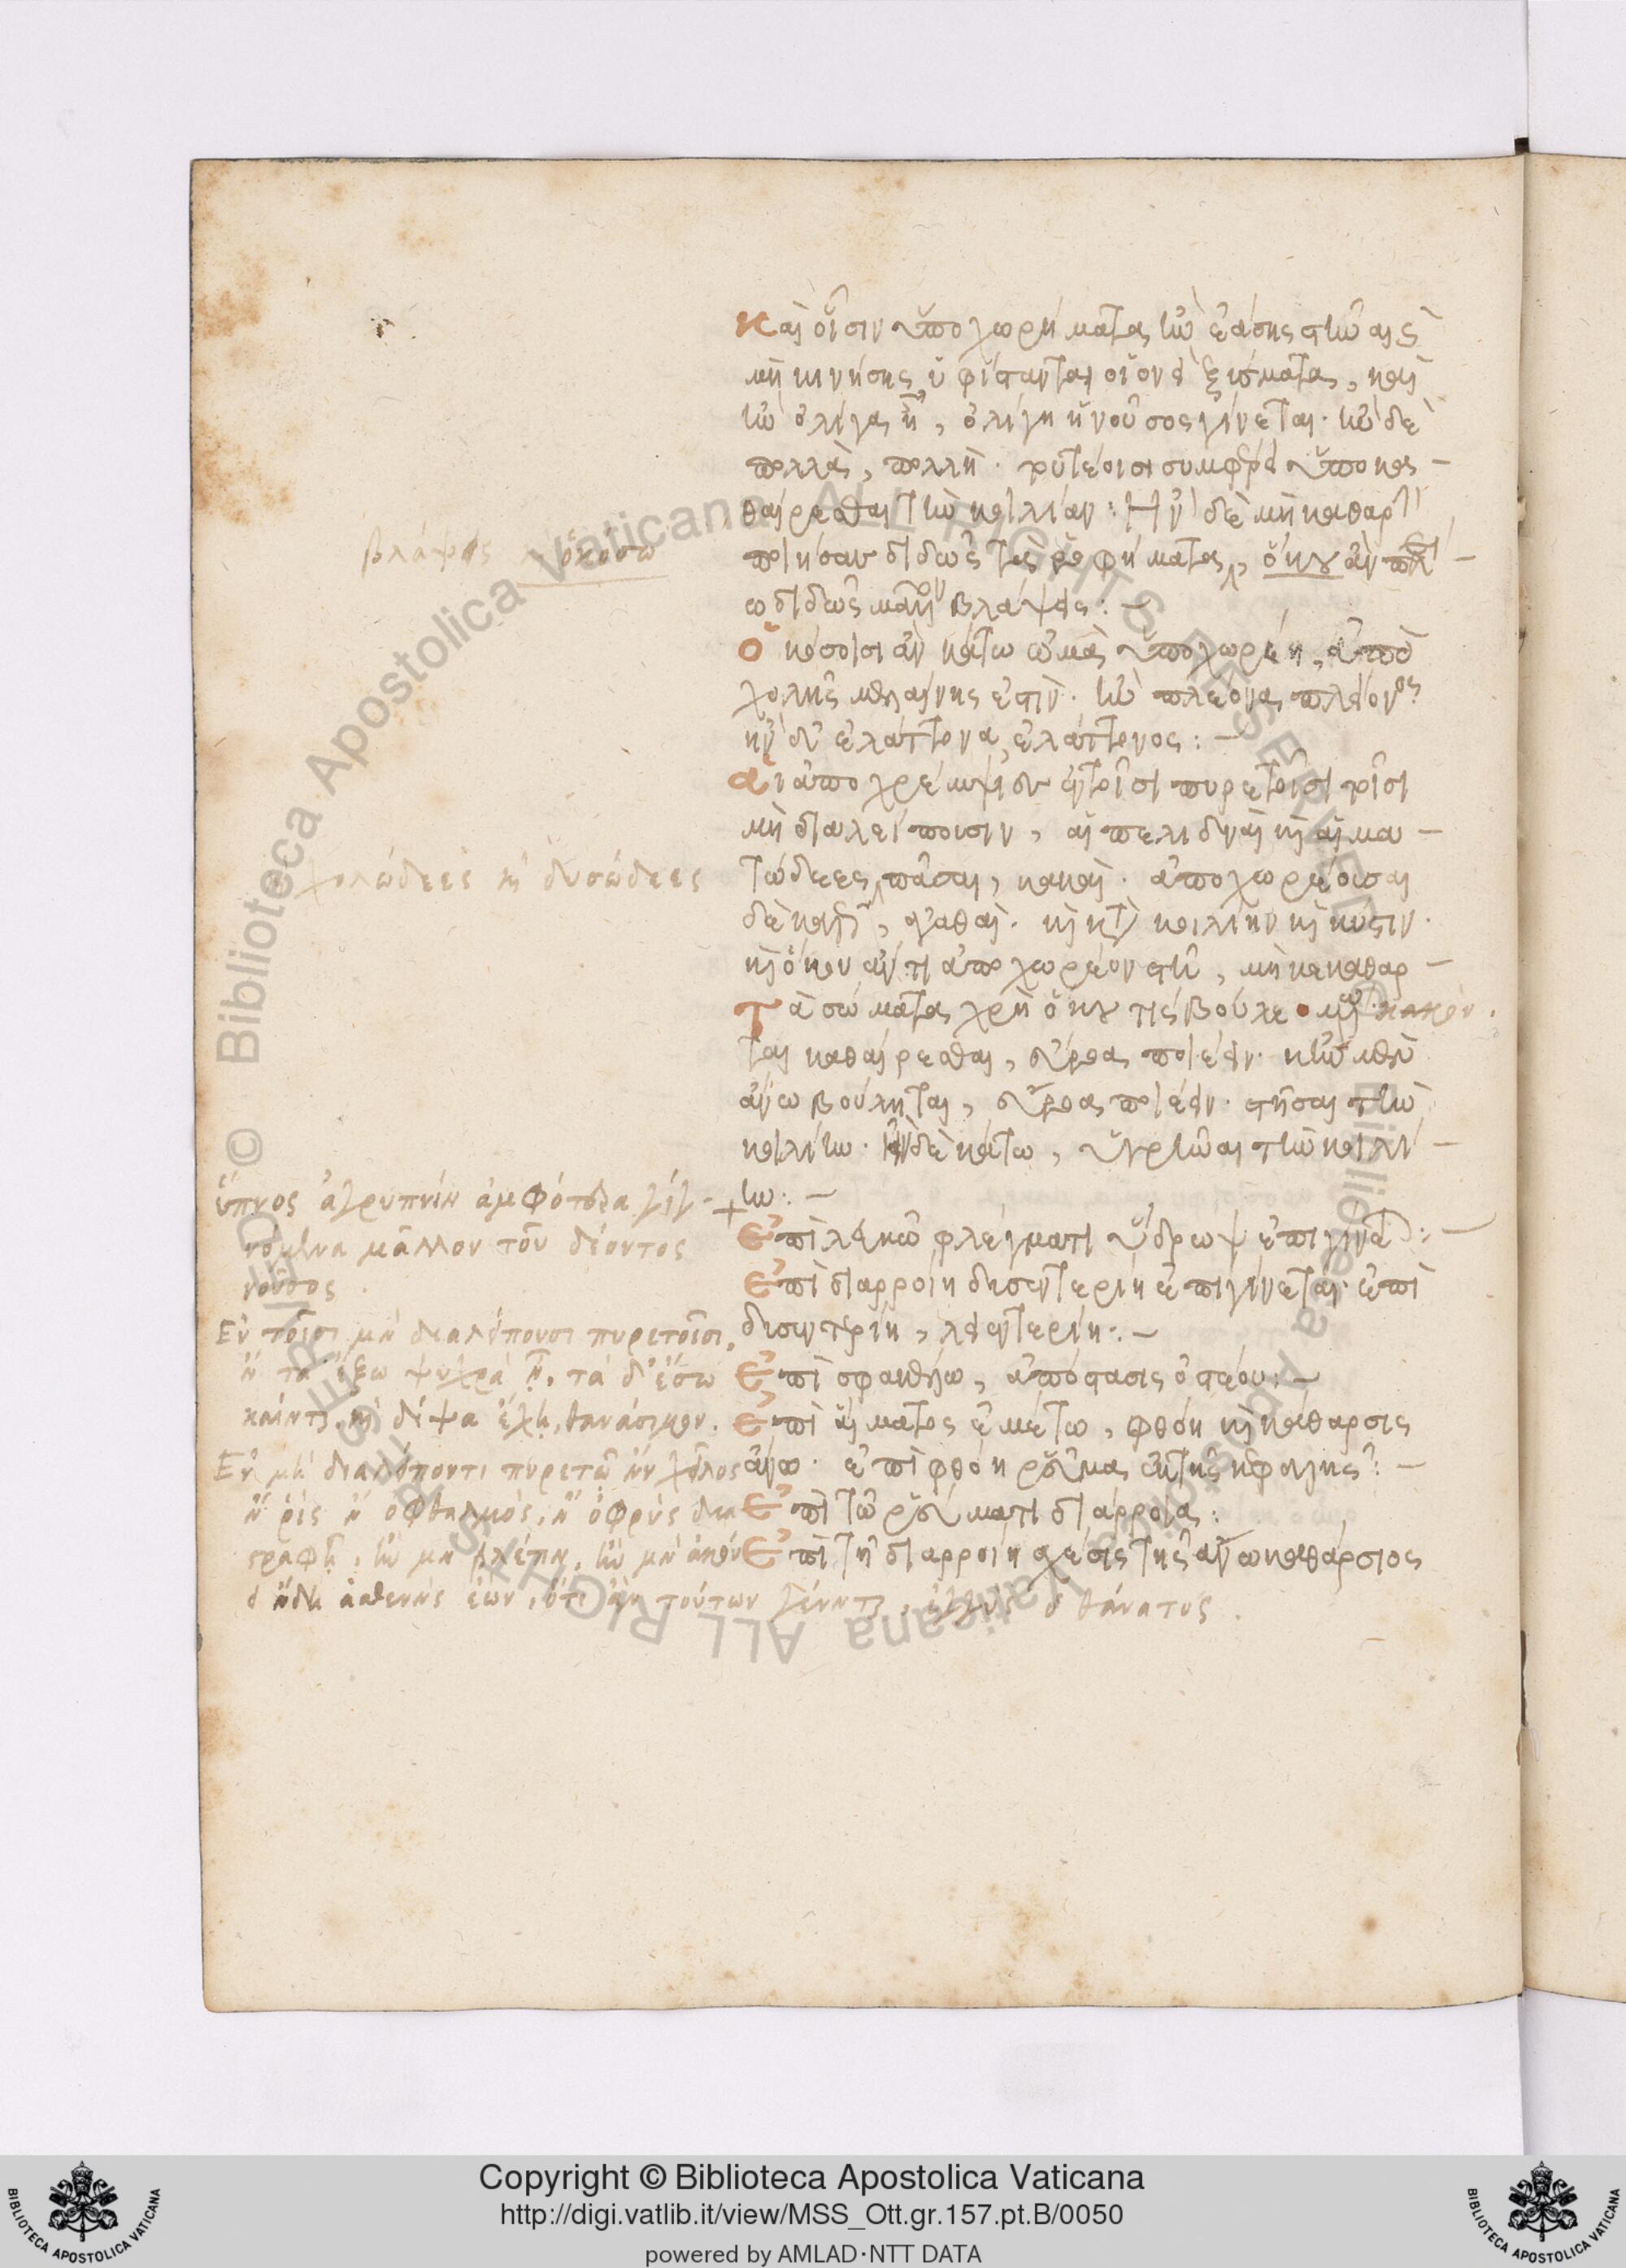 Καὶ οἷσιν ὑποχωρήματα ἢν ἐάσῃς στῆναι καὶ
μὴ κινήσῃς ὑφίσταται οἱονεὶ ξύσματα, καὶ
ἢν ὀλίγα ᾖ, ὀλίγη ἡ νοῦσος γίνεται· ἢν δὲ
πολλὰ, πολλή· τουτέοισι συμφέρει ὑποκα-
θαίρεσθαι τὴν κοιλίαν: Ἢν δὲ μὴ καθαρὴν
ποιήσαν διδῷς τὰ ῥοφήματα, ὅκου ἂν πλεί-
ω διδῷς μᾶλλον βλάψεις:-
Ὁκόσοισι ἂν κάτω ὠμὰ ὑποχωρέῃ, ἀπὸ
χολῆς μελαίνης ἐστίν· ἢν πλέονα πλείονος
ἢν δ' ἐλάττονα, ἐλάττονος:-
Αἱ ἀποχρέμψιες ἐν τοῖσι πυρετοῖσι τοῖσι
μὴ διαλείπουσιν, αἱ πελιδναὶ καὶ αἱμα-
τώδεες, πᾶσαι, κακαὶ· ἀποχωρέουσαι
δὲ καλῶς, ἀγαθαί· καὶ κατὰ κοιλίην καὶ κύστιν·
καὶ ὅκου ἄν τι ἀποχωρέον στῇ, μὴ κεκαθαρ-
μένῳ κακόν.
Τὰ σώματα χρὴ ὅκου τις βούλε-
ται καθαίρεσθαι, εὔροα ποιέειν· κἢν μὲν
ἄνω βούληται, εὔροα ποιέειν· στῆσαι τὴν
κοιλίην· ἢν δὲ κάτω, ὑγρῆναι τὴν κοιλί-
ην:-
Ἐπὶ λευκῷ φλέγματι ὕδρωψ ἐπιγίνεται:-
Ἐπὶ διαρροίη δυσεντερίη ἐπιγίνεται· ἐπὶ
δυσεντερίη, λειεντερίη:-
Ἐπὶ σφακέλῳ, ἀπόστασις ὀστέου:-
Ἐπὶ αἵματος ἐμέτῳ, φθόη καὶ κάθαρσις
ἄνω· ἐπὶ φθόη ῥεῦμα ἐκ τῆς κεφαλῆς:-
Ἐπὶ τῷ ῥεύματι διάρροια:
Ἐπὶ τῇ διαρροίη σχέσις τῆς ἄνω καθάρσιος
βλάψεις ὁκόσῳ
χολώδεες καὶ δυσώδεες
ὕπνος ἀγρυπνίη ἀμφότερα γιγ-
νόμενα μᾶλλον τοῦ δέοντος
νοῦσος
Ἐν τοῖσι μὴ διαλείπουσι πυρετοῖσι,
ἢν τὰ ἔξω ψυχρὰ ᾖ, τὰ δ' ἔσω
καίηται καὶ δίψα ἔχῃ, θανάσιμον.
Ἐν μὴ διαλείποντι πυρετῷ ἢν χεῖλος
ἢ ῥὶς ἢ ὀφθαλμὸς, ἢ ὀφρὺς δια
στραφῇ, ἢν μὴ βλέπῃ, ἢν μὴ ἀκούῃ
ἤδη ἀσθενὴς ἐὼν, ὅτι ἂν τούτων γένηται, ἐγγὺς ὁ θάνατος.
Copyright © Biblioteca Apostolica Vaticana
http://digi.vatlib.it/view/MSS_Ott.gr.157.pt.B/0050
powered by AMLAD·NTT DATA